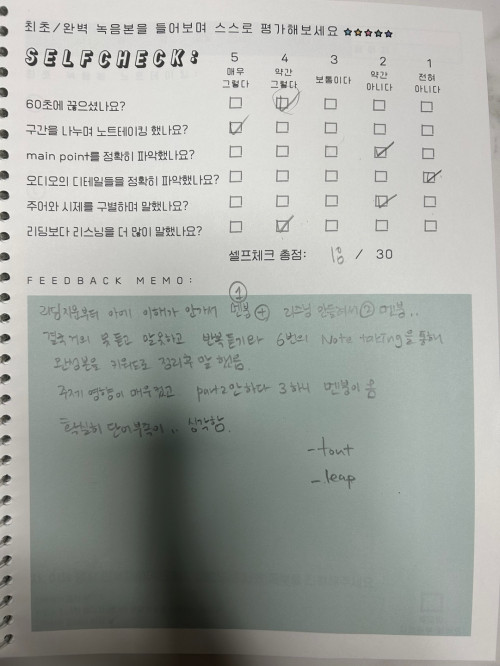 최초/완벽 녹음본을 들어보며 스스로 평가해보세요 ☆☆☆☆☆
SELFCHECK:
5 4 3 2 1
매우 그렇다 약간 그렇다 보통이다 약간 아니다 전혀 아니다
60초에 끊으셨나요?
구간을 나누며 노트테이킹 했나요?
main point를 정확히 파악했나요?
오디오의 디테일들을 정확히 파악했나요?
주어와 시제를 구별하며 말했나요?
리딩보다 리스닝을 더 많이 말했나요?
셀프체크 총점: 18 / 30
FEEDBACK MEMO:
①
리딩지문부터 아예 이해가 안가서 멘붕 + 리스닝 안들려서 ② 멘붕..
결국 거의 못 듣고 말 못하고 반복 듣기와 6번의 Note taking을 통해
완성본을 키워드로 정리 후 말했음.
주제 영향이 매우 컸고 part 2 안하다 3 하니 멘붕이 옴
확실히 단어부족이.. 심각함.
- tout
- leap